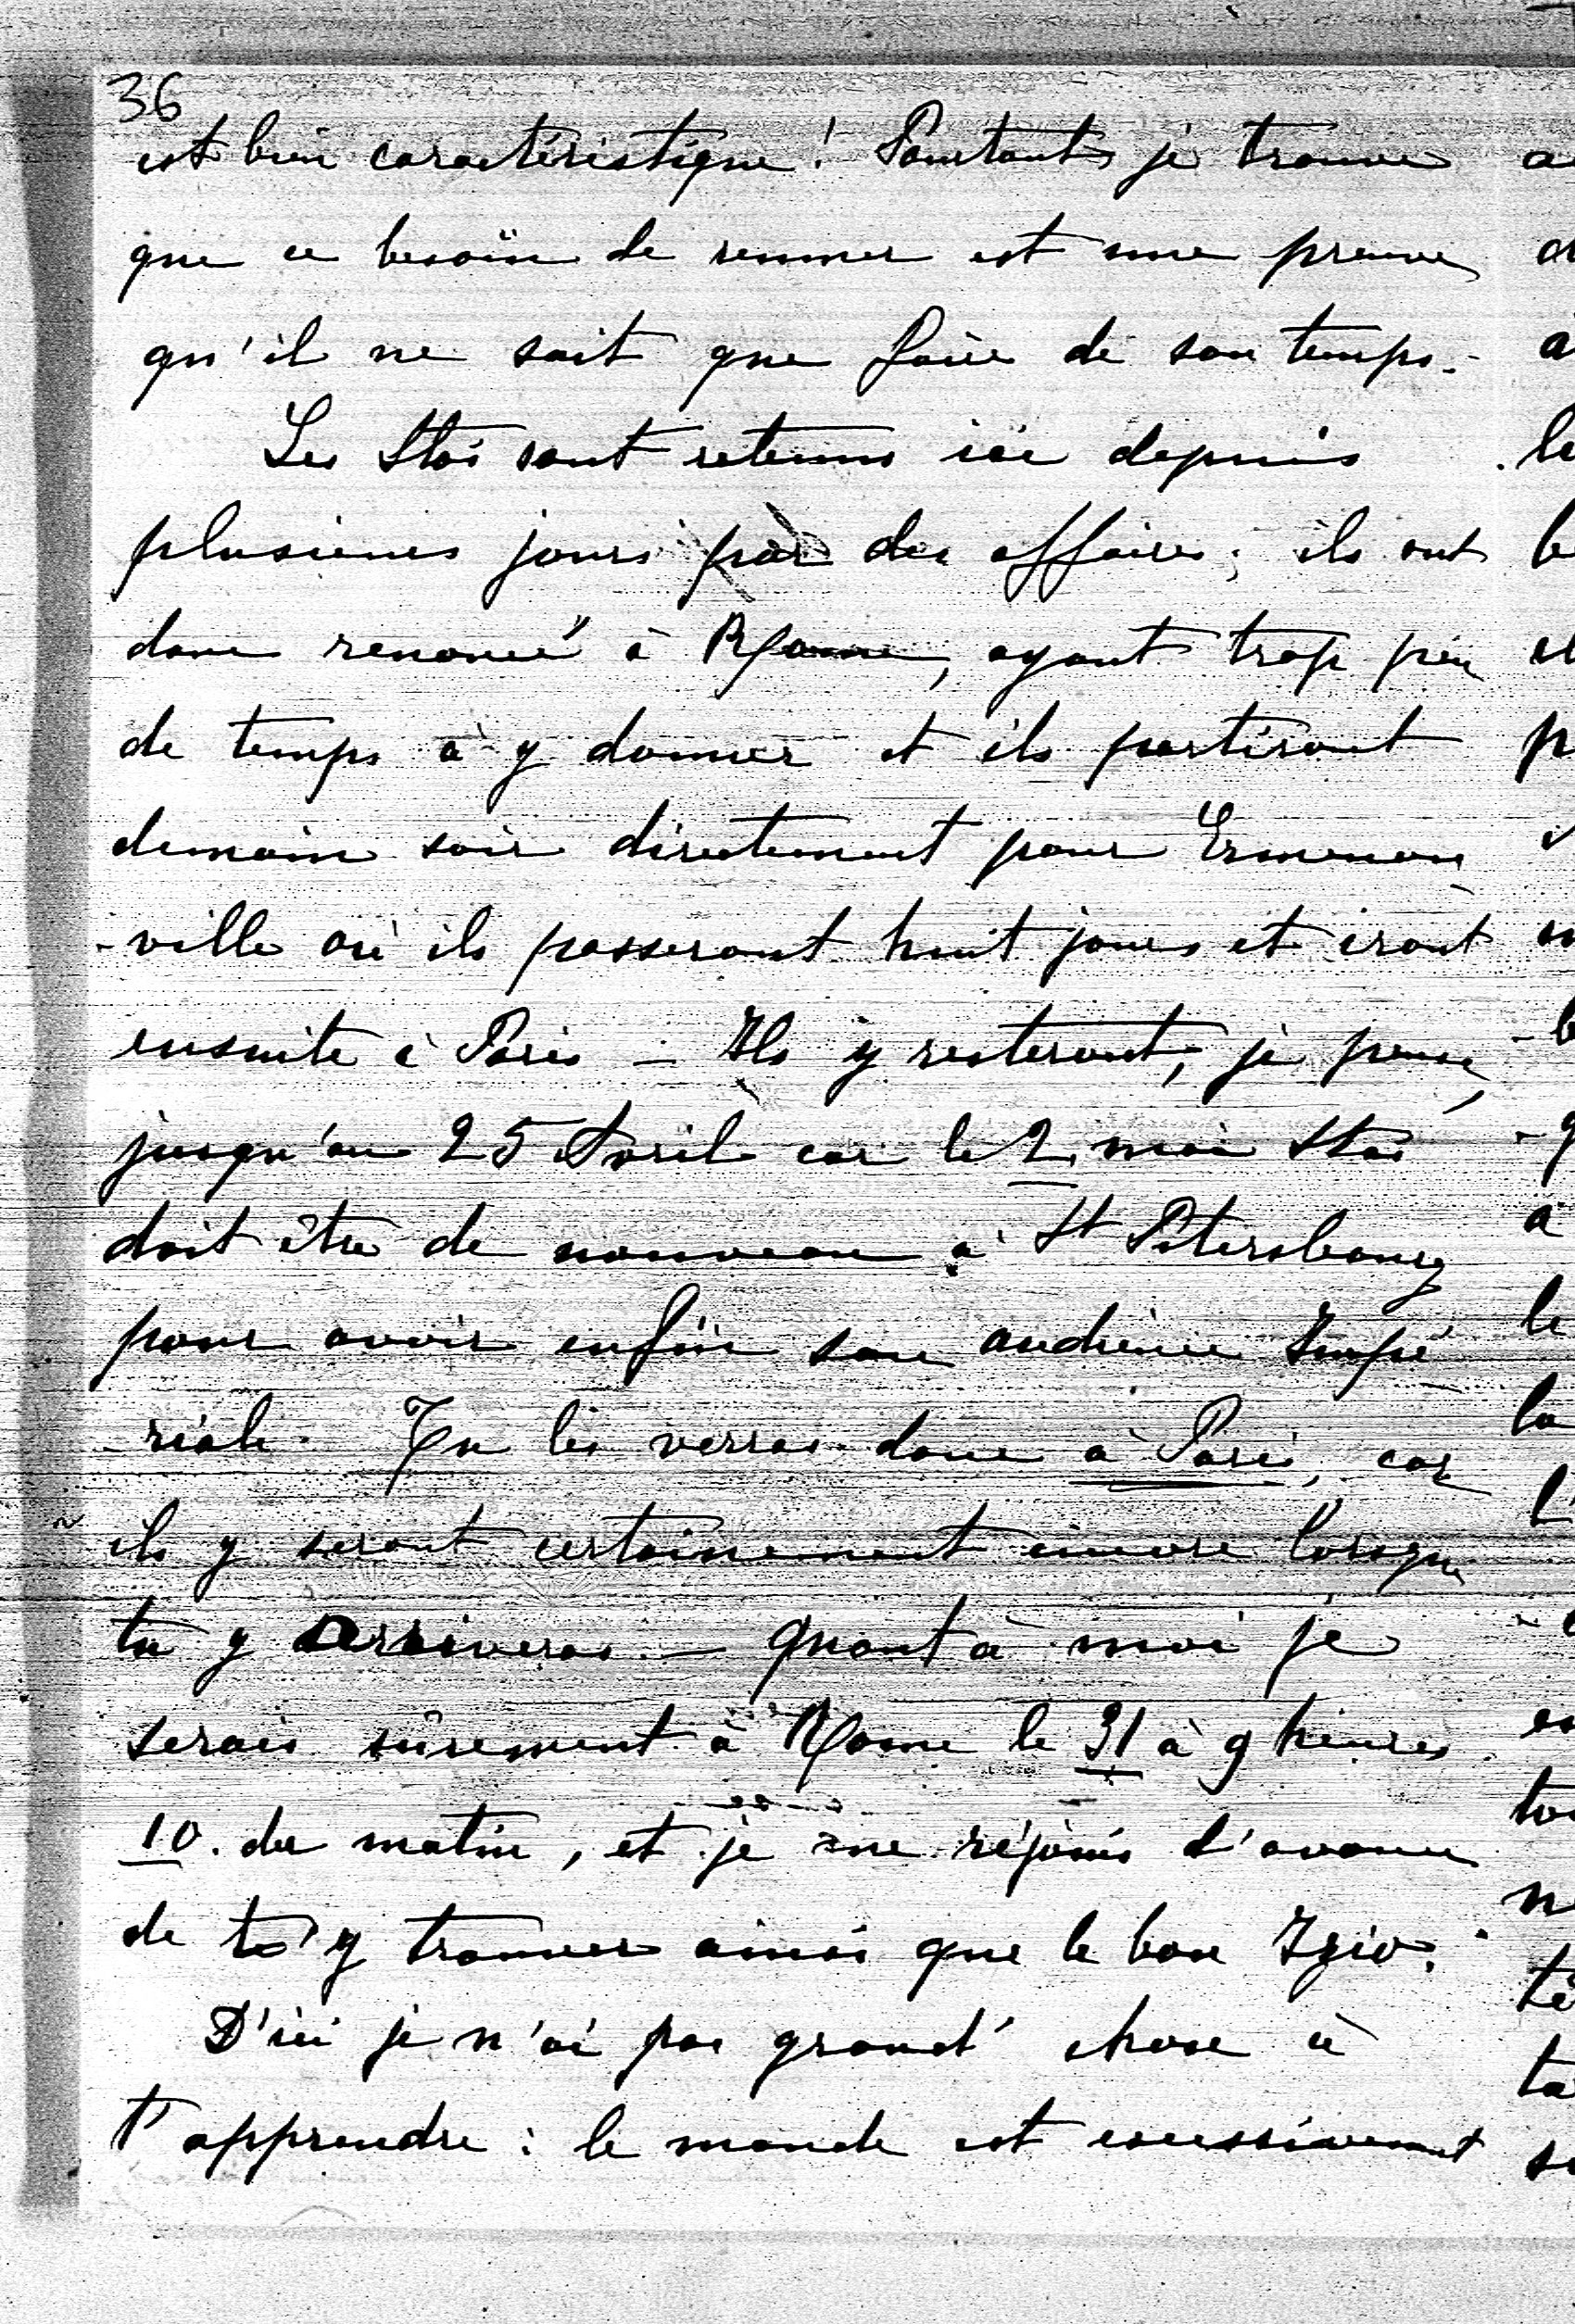 36
est bien caractéristique! Pourtant je trouve
que ce besoin de remuer est une preuve
qu'il ne sait que faire de son temps.
Les Stas sont retenus ici depuis
plusieurs jours par des affaires; ils ont
donc renoncé à Rome, ayant trop peu
de temps à y donner et ils partiront
demain soir directement pour Ermenon
-ville où ils passeront huit jours et iront
ensuite à Paris - Ils y resteront, je pense,
jusqu'au 25 Avril car le 2 mai Stas
doit être de nouveau à St Pétersbourg
pour avoir enfin son audience Impé
-riale. Tu les verras donc à Paris, car
ils y seront certainement encore lorsque
tu y arriveras - quant à moi je
serais sûrement à Rome le 31 à 9 heures
10. du matin, et je me réjouis d'avance
de t'y trouver ainsi que le bon Izio.
D'ici je n'ai pas grand' chose à
t'apprendre: le monde est excessivement